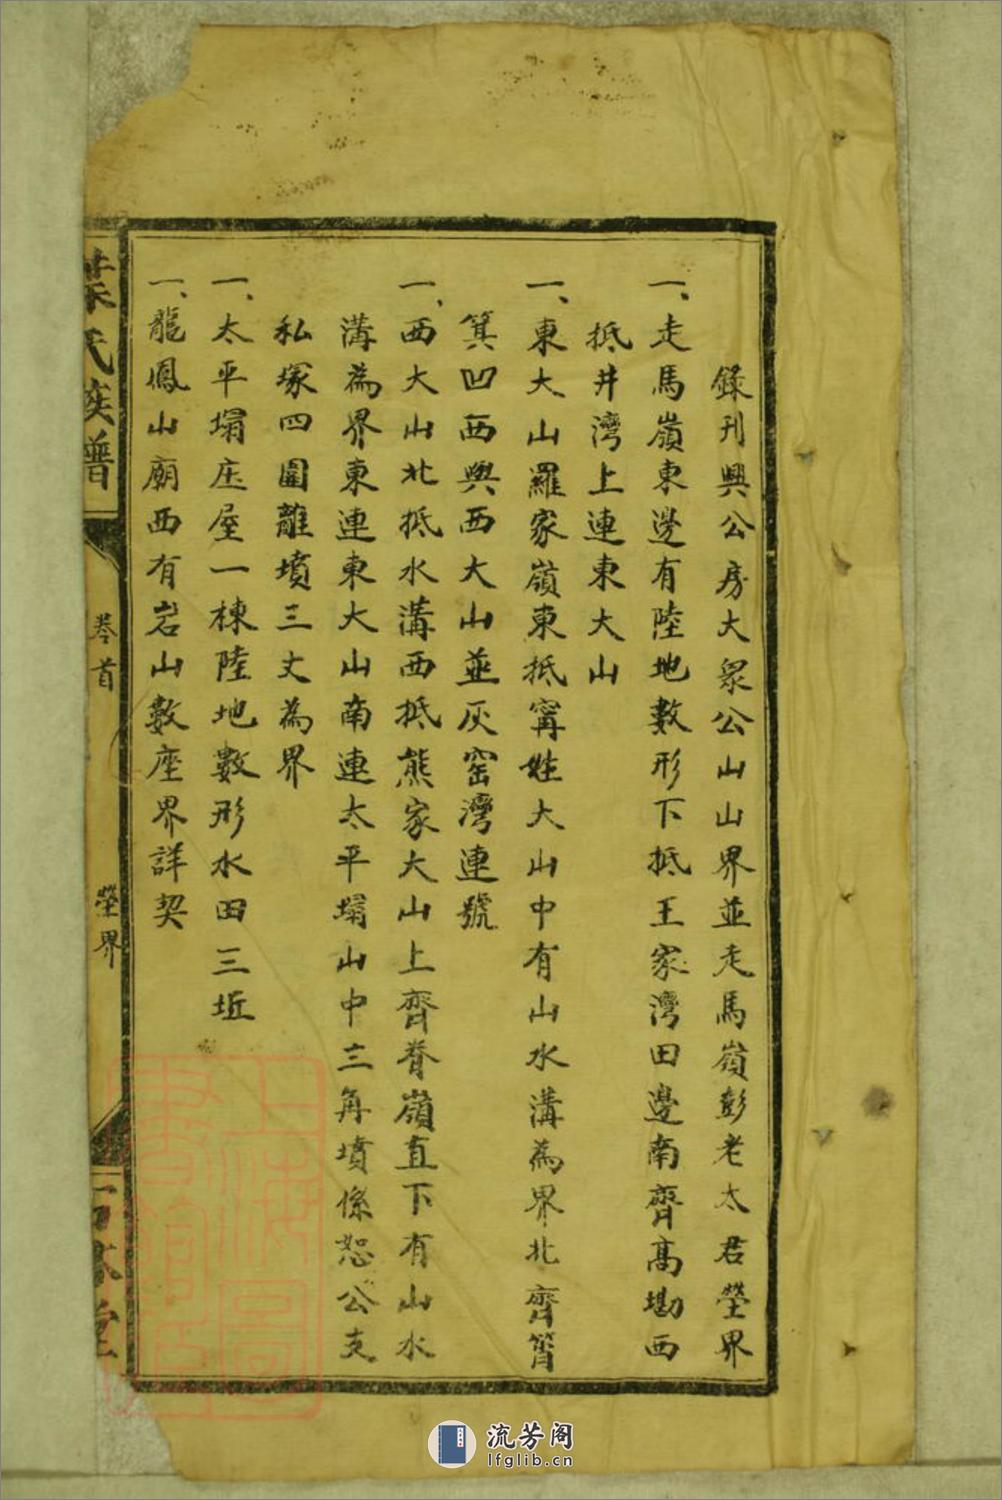 錄刊興公房大眾公山山界並走馬嶺彭老太君塋界
一、走馬嶺東邊有陸地數形下抵王家灣田邊南齊高墈西
抵井灣上連東大山
一、東大山羅家嶺東抵甯姓大山中有山水溝為界北齊筲
箕凹西與西大山並灰窑灣連號
一、西大山北抵水溝西抵熊家大山上齊脊嶺直下有山水
溝為界東連東大山南連太平塌山中三角墳係恕公支
私塚四圍離墳三丈為界
一、太平塌庄屋一棟陸地數形水田三坵
一、龍鳳山廟西有岩山數座界詳契
葉氏族譜
卷首
塋界
堂
流芳阁
lfglib.cn